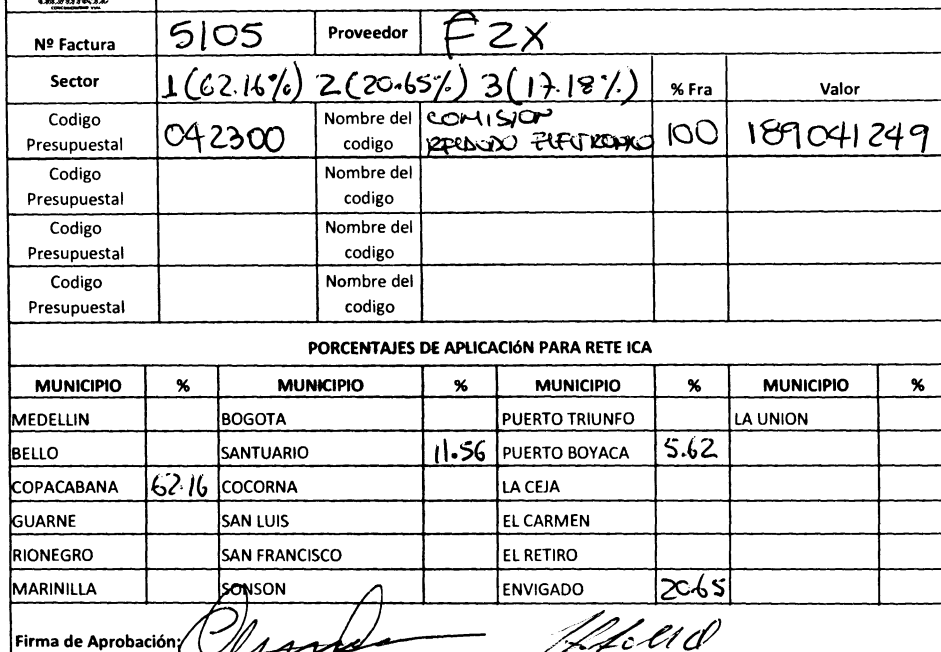 Nº Factura 5105 Proveedor F2X
Sector 1(62.16%) 2(20.65%) 3(17.18%) % Fra Valor
Codigo Presupuestal 042300 Nombre del codigo COMISION RECAUDO ELECTRONICO 100 189041249
Codigo Presupuestal Nombre del codigo
Codigo Presupuestal Nombre del codigo
Codigo Presupuestal Nombre del codigo
PORCENTAJES DE APLICACIÓN PARA RETE ICA
MUNICIPIO % MUNICIPIO % MUNICIPIO % MUNICIPIO %
MEDELLIN BOGOTA PUERTO TRIUNFO LA UNION
BELLO SANTUARIO 11.56 PUERTO BOYACA 5.62
COPACABANA 62.16 COCORNA LA CEJA
GUARNE SAN LUIS EL CARMEN
RIONEGRO SAN FRANCISCO EL RETIRO
MARINILLA SONSON ENVIGADO 20.65
Firma de Aprobación: